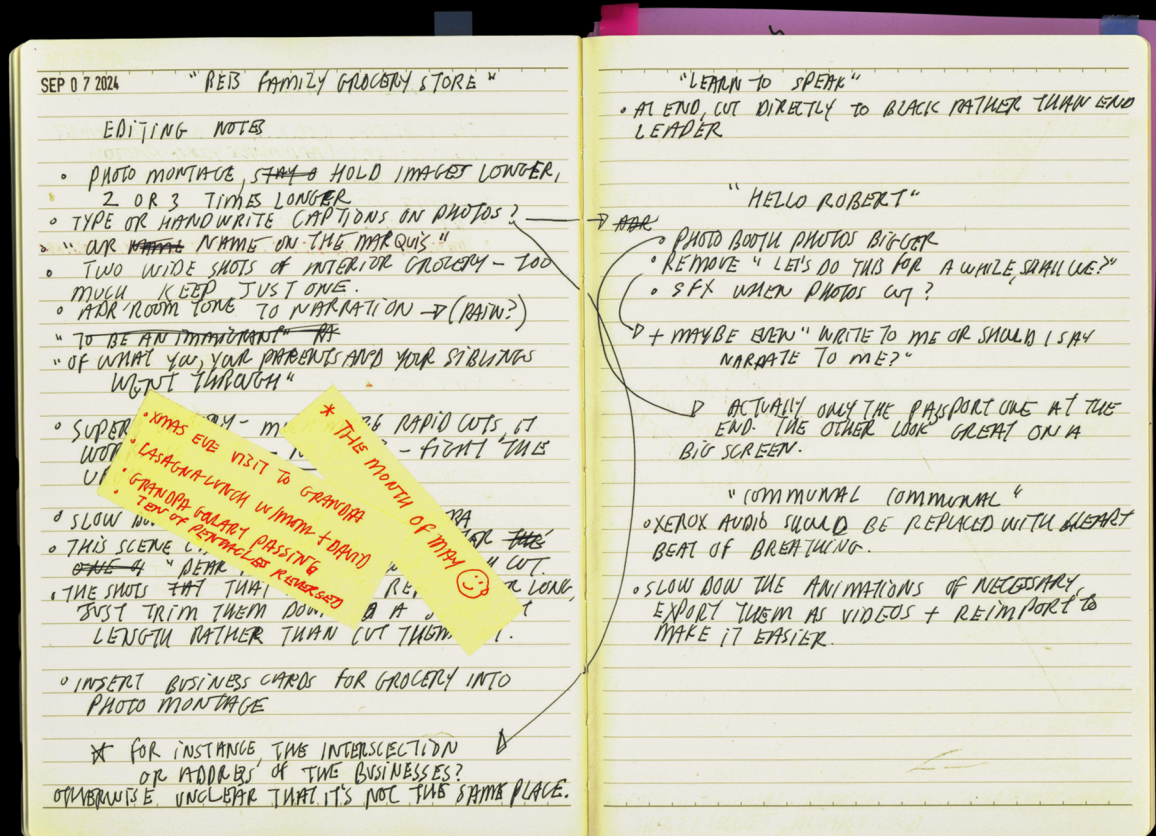 SEP 07 2024
"REB FAMILY GROCERY STORE"
EDITING NOTES
• PHOTO MONTAGE, HOLD IMAGES LONGER,
2 OR 3 TIMES LONGER
• TYPE OR HANDWRITE CAPTIONS ON PHOTOS?
• "OUR NAME NAME ON THE MARQUIS"
• TWO WIDE SHOTS OF INTERIOR GROCERY - TOO
MUCH KEEP JUST ONE.
• ADR/ROOM TONE TO NARRATION → (RAIN?)
"TO BE AN IMMIGRANT"
"OF WHAT YOU, YOUR PARENTS AND YOUR SIBLINGS
WENT THROUGH"
• SUPER RAPID CUTS, IT
- FIGHT THE
• SLOW
• THIS SCENE THE
ONE "DEAR CUT.
• THE SHOTS THAT LONG,
JUST TRIM THEM A
LENGTH RATHER THAN CUT THEM
• INSERT BUSINESS CARDS FOR GROCERY INTO
PHOTO MONTAGE
* FOR INSTANCE, THE INTERSECTION
OR ADDRESS OF THE BUSINESSES?
OTHERWISE UNCLEAR THAT IT'S NOT THE SAME PLACE.
• XMAS EVE VISIT TO GRANDPA
• LASAGNA LUNCH W/MOM + DAVID
• GRANDPA PASSING
• TEN OF PENTACLES REVERSED
* THE MONTH OF MAY
"LEARN TO SPEAK"
• AT END, CUT DIRECTLY TO BLACK RATHER THAN END
LEADER
"HELLO ROBERT"
ADR
• PHOTO BOOTH PHOTOS BIGGER
• REMOVE "LET'S DO THIS FOR A WHILE, SHALL WE?"
• SFX WHEN PHOTOS CUT?
+ MAYBE EVEN "WRITE TO ME OR SHOULD I SAY
NARRATE TO ME?"
ACTUALLY ONLY THE PASSPORT ONE AT THE
END- THE OTHER LOOK GREAT ON A
BIG SCREEN.
"COMMUNAL COMMUNAL"
• XEROX AUDIO SHOULD BE REPLACED WITH HEART
BEAT OF BREATHING.
• SLOW DOWN THE ANIMATIONS OF NECESSARY,
EXPORT THEM AS VIDEOS + REIMPORT TO
MAKE IT EASIER.